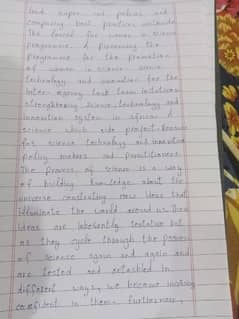 and policies and
computing best practice
The for women in science
programme. A pioneering the
programme for the promotion
of women in science
technology and innovation for the
Inter agency task team initiatives
strengthening science, technology and
innovation system in africa A
science which wide project
for science technology and innovative
policy makers and
The process of science is a way
of building knowledge about the
universe constructing new ideas that
illuminate the world around us. Those
ideas are tentative but
as they cycle through the process
of science again and again and
are tested and
different ways we become
confident in them furthermore,